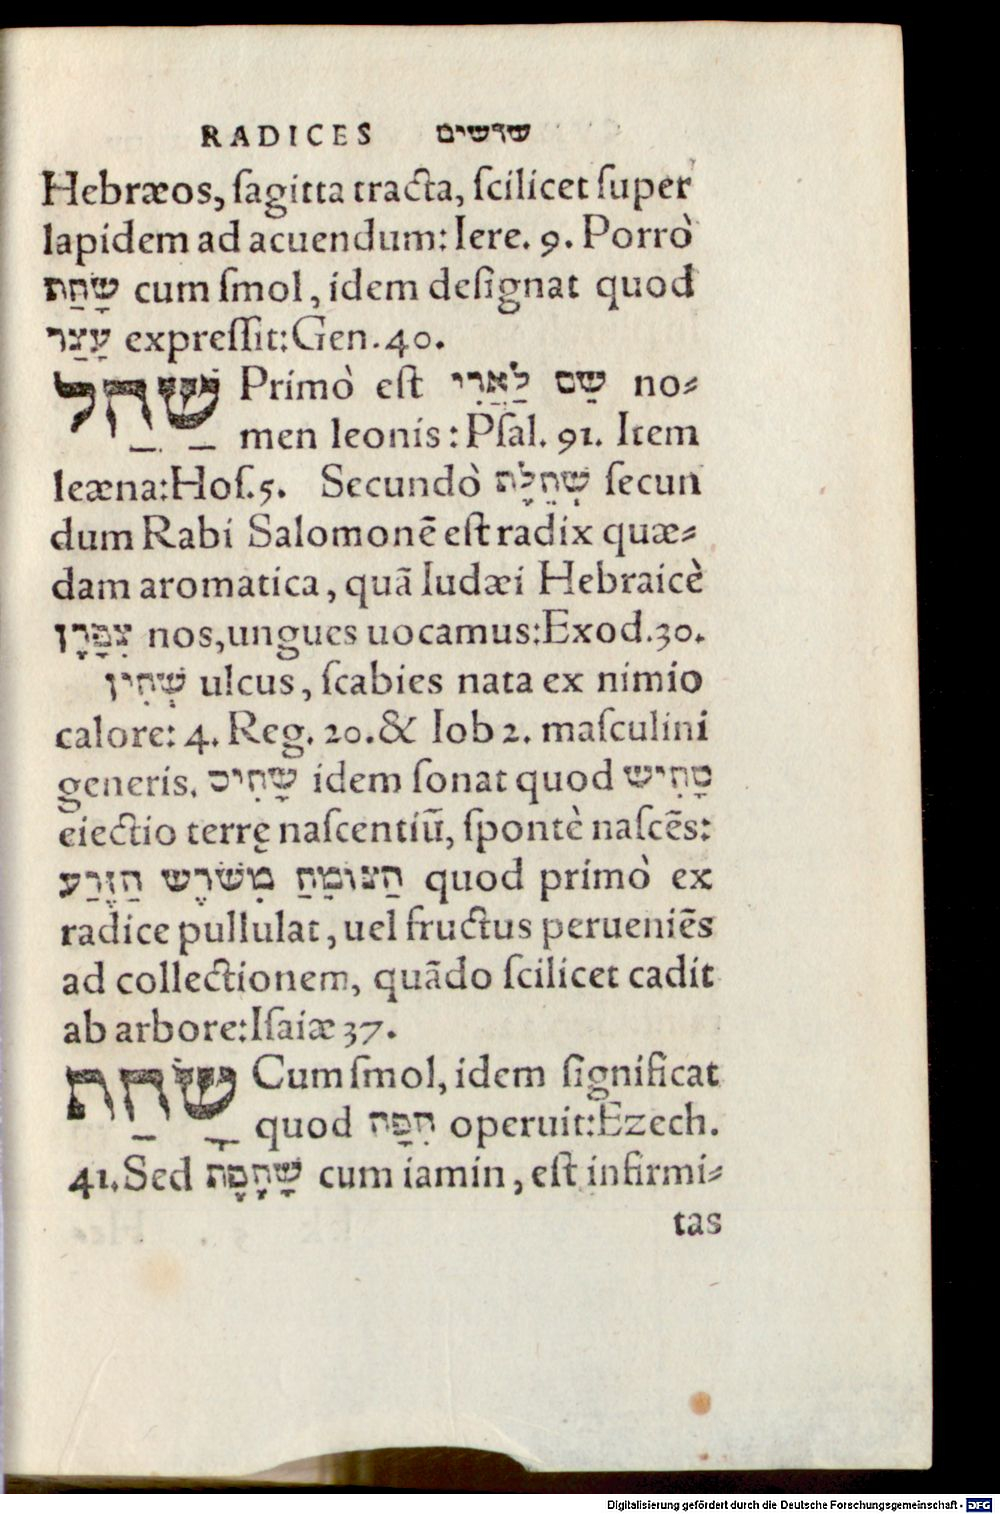 RADICES שרשים
Hebræos, ſagitta tracta, ſcilicet ſuper
lapidem ad acuendum: Iere. 9. Porrò
שָׂחַת cum ſmol, idem deſignat quod
עָצַר expreſſit: Gen. 40.
שַׁחַל Primò eſt שָם לַאֲרִי no⸗
men leonis: Pſal. 91. Item
leæna: Hoſ. 5. Secundò שְׁחֵלָת ſecun
dum Rabi Salomonē eſt radix quæ⸗
dam aromatica, quā Iudæi Hebraicè
צִפָּרָן nos, ungues uocamus: Exod. 30.
שְׁחִין ulcus, ſcabies nata ex nimio
calore: 4. Reg. 20. & Iob 2. maſculini
generis. שָׁחִיס idem ſonat quod סָחִיש
eiectio terrę naſcentiū, ſpontè naſcēs:
הַצּוֹמֵחַ מִשֹּׁרֶש הַזֶּרַע quod primò ex
radice pullulat, uel fructus perueniēs
ad collectionem, quādo ſcilicet cadit
ab arbore: Iſaiæ 37.
שָׂחַת Cum ſmol, idem ſignificat
quod חִפָּה operuit: Ezech.
41. Sed שָׁחָפָת cum iamin, eſt infirmi⸗
tas
Digitalisierung gefördert durch die Deutsche Forschungsgemeinschaft - DFG